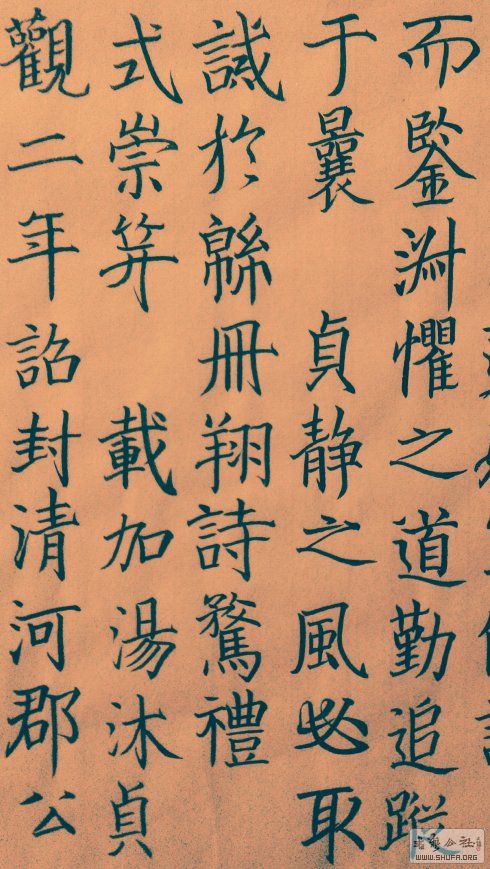 而鋻淵懼之道勤追蹤
于曩貞静之風必取
誡於緜冊翔詩騖禮
式崇笄載加湯沐貞
觀二年詔封清河郡公
WWW.SHUFA.ORG